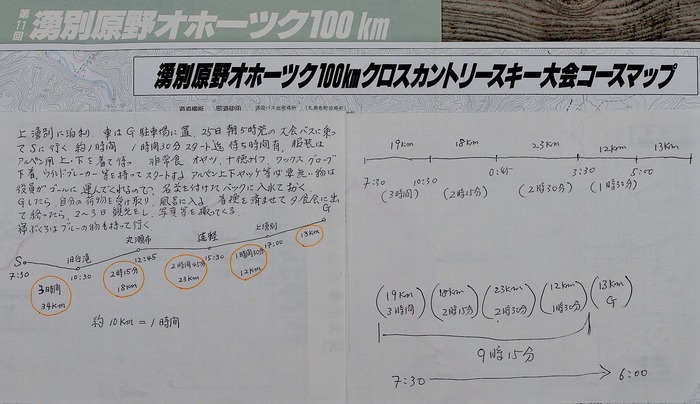 第11回 湧別原野オホーツク100km
湧別原野オホーツク100kmクロスカントリースキー大会コースマップ
上湧別に泊り 車はG駐車場に置 25日朝5時発の大会バスに乗
ってSに行く 約1時間 1時間30分スタート迄待ち時間有 服装は
アルペン用上・下を着て待つ 非常食 オヤツ、十徳ナイフ、ワックス、グローブ
下着、ウインドブレーカー等を持ってスタートする アルペン上下ヤッケ等必要無い物は
役員がゴールに運んでくれるので、名前を付けたバックに入れておく。
Gしたら 自分の荷物を受け取り 風呂に入る 着換を済ませて夕食会に出
て終ったら、2〜3日観光をし、写真等を撮ってくる。
寝ぶくろはブルーの物を持って行く。
S 旧白滝 丸瀬布 遠軽 上湧別 G
7:30 10:30 12:45 15:30 17:00
3時間 34km
2時15分 18km
2時間45分 23km
1時間30分 12km
13km
約10km=1時間
19km 18km 23km 12km 13km
7:30 10:30 0:45 3:30 5:00
(3時間) (2時15分) (2時30分) (1時30分)
(19km 3時間) (18km 2時15分) (23km 2時30分) (12km 1時30分) (13km G)
9時15分
7:30 → 6:00